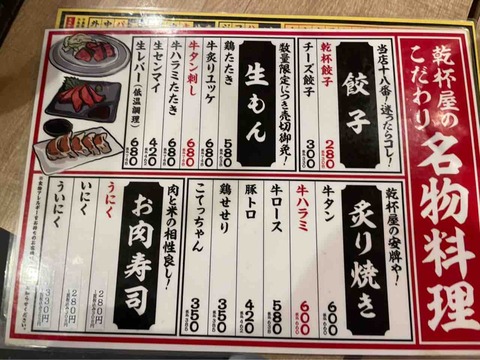 乾杯屋の
こだわり
名物料理
当店十八番!迷ったらコレ!
餃子
乾杯餃子 280
チーズ餃子 300
数量限定につき売切御免!
生もん
鶏たたき 580
牛炙りユッケ 680
牛タン刺し 680
牛ハラミたたき 680
生センマイ 420
生レバー(低温調理) 680
乾杯屋の安牌や!
炙り焼き
牛タン 600
牛ハラミ 600
牛ロース 580
豚トロ 420
鶏せせり 350
こてっちゃん 350
肉と米の相性良し!
お肉寿司
うにく 280円
いにく 280円
ういにく 330円